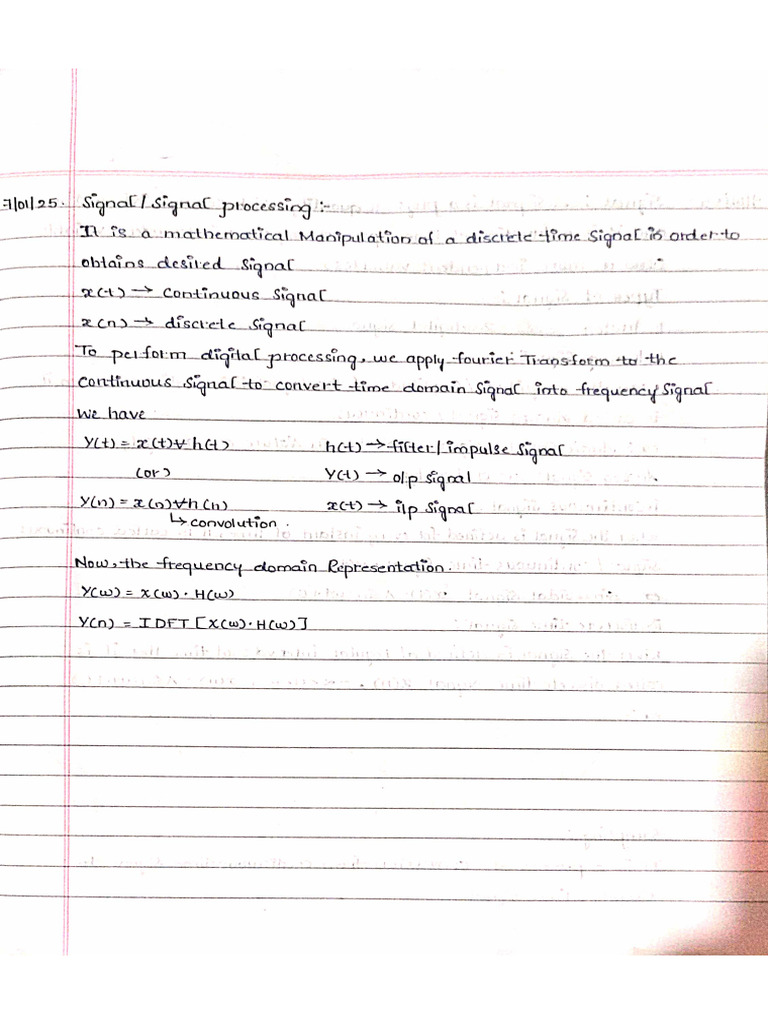 7/01/25. Signal / Signal processing :-
It is a mathematical Manipulation of a discrete time Signal in order to
obtains desired Signal
x(t) → Continuous Signal
x(n) → discrete Signal
To perform digital processing, we apply fourier Transform to the
Continuous Signal to convert time domain Signal into frequency Signal
We have
Y(t) = x(t) ∗ h(t) h(t) → filter / impulse Signal
(or) Y(t) → o/p Signal
Y(n) = x(n) ∗ h(n) x(t) → i/p Signal
↳ convolution .
Now, the frequency domain Representation.
Y(ω) = X(ω) · H(ω)
Y(n) = IDFT [X(ω) · H(ω)]